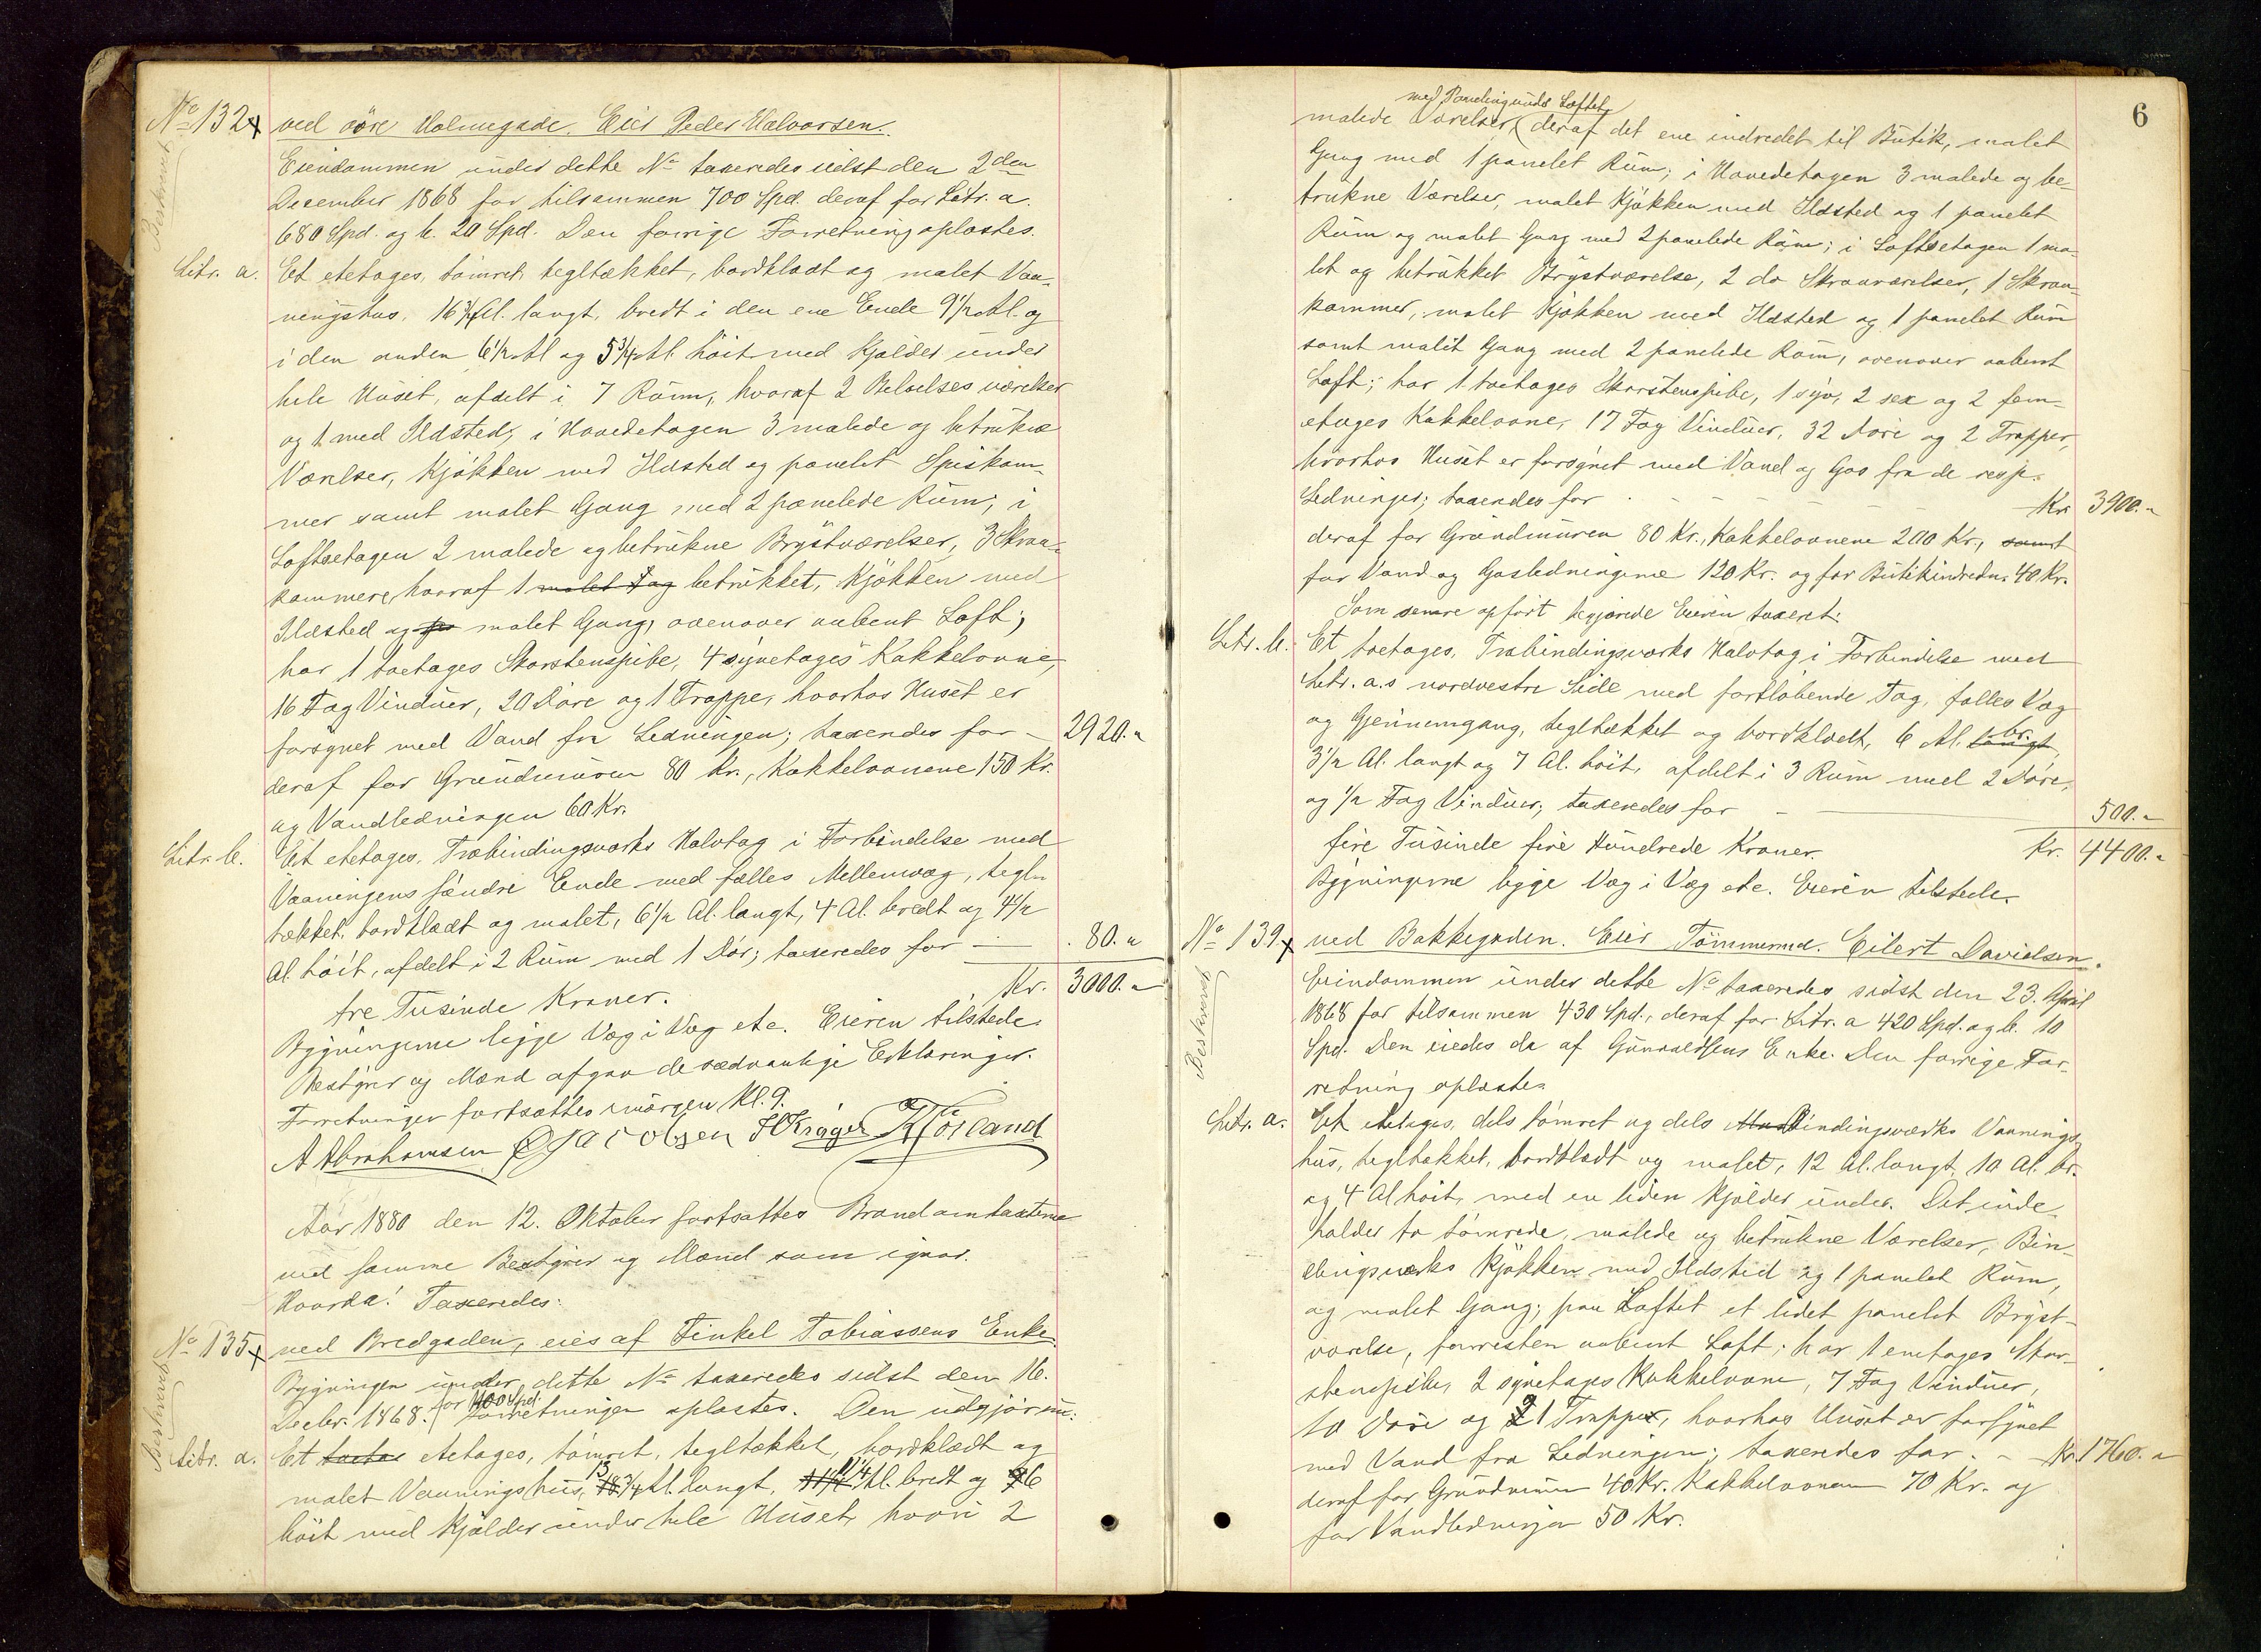 No 132x ved övre Holmegade. Eier Peder Halvorsen.
Beskrevet
Eiendommen under dette No taxeredes sidst den 2den
December 1868 for tilsammen 700 Spd. deraf for Litr. a.
680 Spd. og b. 20 Spd. Den forrige Forretning oplæstes.
Litr. a. Et etetages, tömret, tegltækket, bordklædt og malet Vaa-
ningshus, 16 3/4 Al. langt, bredt i den ene Ende 9 1/2 Al. og
i den anden 6 1/2 Al og 5 3/4 Al. höit med Kjælder under
hele Huset, afdelt i 7 Rum, hvoraf 2 Beboelsesværelser
og 1 med Ildsted, i Hovedetagen 3 malede og betrukne
Værelser, Kjökken med Ildsted og panelet Spiskam-
mer samt malet Gang med 2 panelede Rum; i
Loftsetagen 2 malede og betrukne Brystværelser, 3 Skraa-
kammere, hvoraf 1 malet Fag betrukket, Kjökken med
Ildsted og malet Gang, ovenover aabent Loft;
har 1 toetages Skorstenspibe, 4 syvetages Kakkelovne,
16 Fag Vinduer, 20 Döre og 1 Trappe, hvorhos Huset er
forsynet med Vand fra Ledningen; taxeredes for - 2920.-
deraf for Grundmuren 80 Kr., Kakkelovnene 150 Kr.
og Vandledningen 60 Kr.
Litr. b. Et etetages, Træbindingsværks Halvtag i Forbindelse med
Vaaningens söndre Ende med fælles Mellemvæg, tegl-
tækket, bordklædt og malet, 6 1/2 Al. langt, 4 Al. bredt og 4 1/2
Al. höit, afdelt i 2 Rum med 1 Dör; taxeredes for - 80.-
Kr. 3000.-
tre Tusinde Kroner.
Bygningerne ligge Væg i Væg etc. Eieren tilstede.
Bestyrer og Mænd afgav de sædvanlige Erklæringer.
Forretningen fortsættes imorgen Kl. 9.
A Abrahamsen O Jacobsen H Kröger K Törland
Aar 1880 den 12. Oktober fortsattes Brandomtaxterne
med samme Bestyrer og Mænd som igaar.
Hvorda! Taxeredes:
No 135x ved Bredgaden, eies af Tinkel Tobiassens Enke.
Beskrevet
Bygningen under dette No taxeredes sidst den 16.
Decbr. 1868. for 1100 Spd. Forretningen oplæstes. Den udgjör nu:
Litr. a. Et toetas etetages, tömret, tegltækket, bordklædt og
malet Vaaningshus, 18 13 3/4 Al. langt, 11 1/2 11 1/4 Al. bredt og 9 6
höit med Kjælder under hele Huset, hvori 2
6
malede Værelser, med Panelingunds Loftet, deraf det ene indredet til Butik, malet
Gang med 1 panelet Rum; i Hovedetagen 3 malede og be-
trukne Værelser, malet Kjökken med Ildsted og 1 panelet
Rum og malet Gang med 2 panelede Rum; i Loftsetagen 1 ma-
let og betrukket Brystværelse, 2 do Skraaværelser, 1 Skraa-
kammer, malet Kjökken med Ildsted og 1 panelet Rum
samt malet Gang med 2 panelede Rum, ovenover aabent
Loft; har 1 toetages Skorstenspibe, 1 syv, 2 sex og 2 fem-
etages Kakkelovne, 17 Fag Vinduer, 32 Döre og 2 Trapper,
hvorhos Huset er forsynet med Vand og Gas fra de resp.
Ledninger; taxeredes for - - - - - Kr. 3900.-
deraf for Grundmuren 80 Kr., Kakkelovnene 200 Kr., samt
for Vand og Gasledningerne 120 Kr. og for Butikindredn. 40 Kr.
Som senere opfört begjærede Eieren taxeret:
Litr. b. Et toetages, Træbindingsværks Halvtag i Forbindelse med
Litr. a.s nordvestre Side med fortlöbende Tag, fælles Væg
og Gjennemgang, tegltækket og bordklædt, 6 Al. langt br.
3 1/2 Al. langt og 7 Al. höit, afdelt i 3 Rum med 2 Döre,
og 1/2 Fag Vinduer; taxeredes for - 500.-
fire Tusinde fire Hundrede Kroner. Kr. 4400.-
Bygningerne ligge Væg i Væg etc. Eieren tilstede.
No 139x ved Bakkegaden. Eier Tömmermd. Eilert Davidsen.
Beskrevet
Eiendommen under dette No taxeredes sidst den 23. April
1868 for tilsammen 430 Spd., deraf for Litr. a 420 Spd. og b. 10
Spd. Den eiedes da af Gunvaldsens Enke. Den forrige For-
retning oplæstes.
Litr. a. Et etetages, dels tömret og dels Bindingsværks Vaanings-
hus, tegltækket, bordklædt og malet, 12 Al. langt, 10 Al. br.
og 4 Al höit, med en liden Kjælder under. Det inde-
holder to tömrede, malede og betrukne Værelser, Bin-
dingsværks Kjökken med Ildsted og 1 panelet Rum,
og malet Gang; paa Loftet et lidet panelet Bryst-
værelse, forresten aabent Loft; har 1 enetages Skor-
stenspibe, 2 syvetages Kakkelovne, 7 Fag Vinduer,
10 Döre og 2 1 Trapper, hvorhos Huset er forsynet
med Vand fra Ledningen; taxeredes for - Kr. 1760.-
deraf for Grundmuren 40 Kr. Kakkelovnene 70 Kr. og
for Vandledningen 50 Kr.